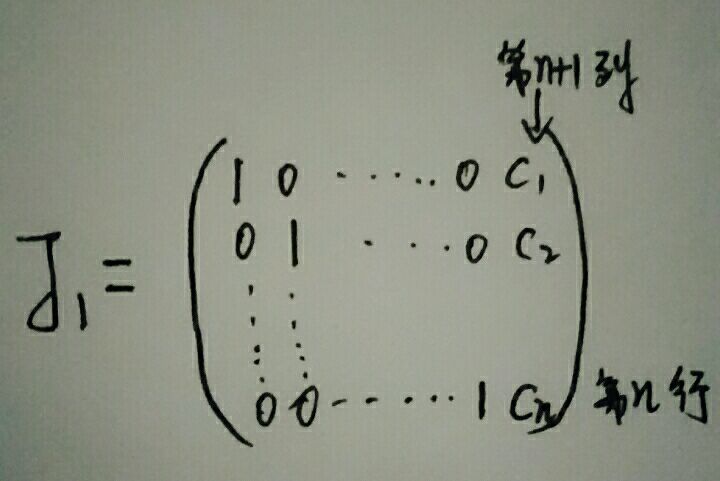 第n+1列
↓
1 0 ······ 0 C₁
0 1 · ··· 0 C₂
J₁=
0 0 ------ 1 Cₙ 第n行